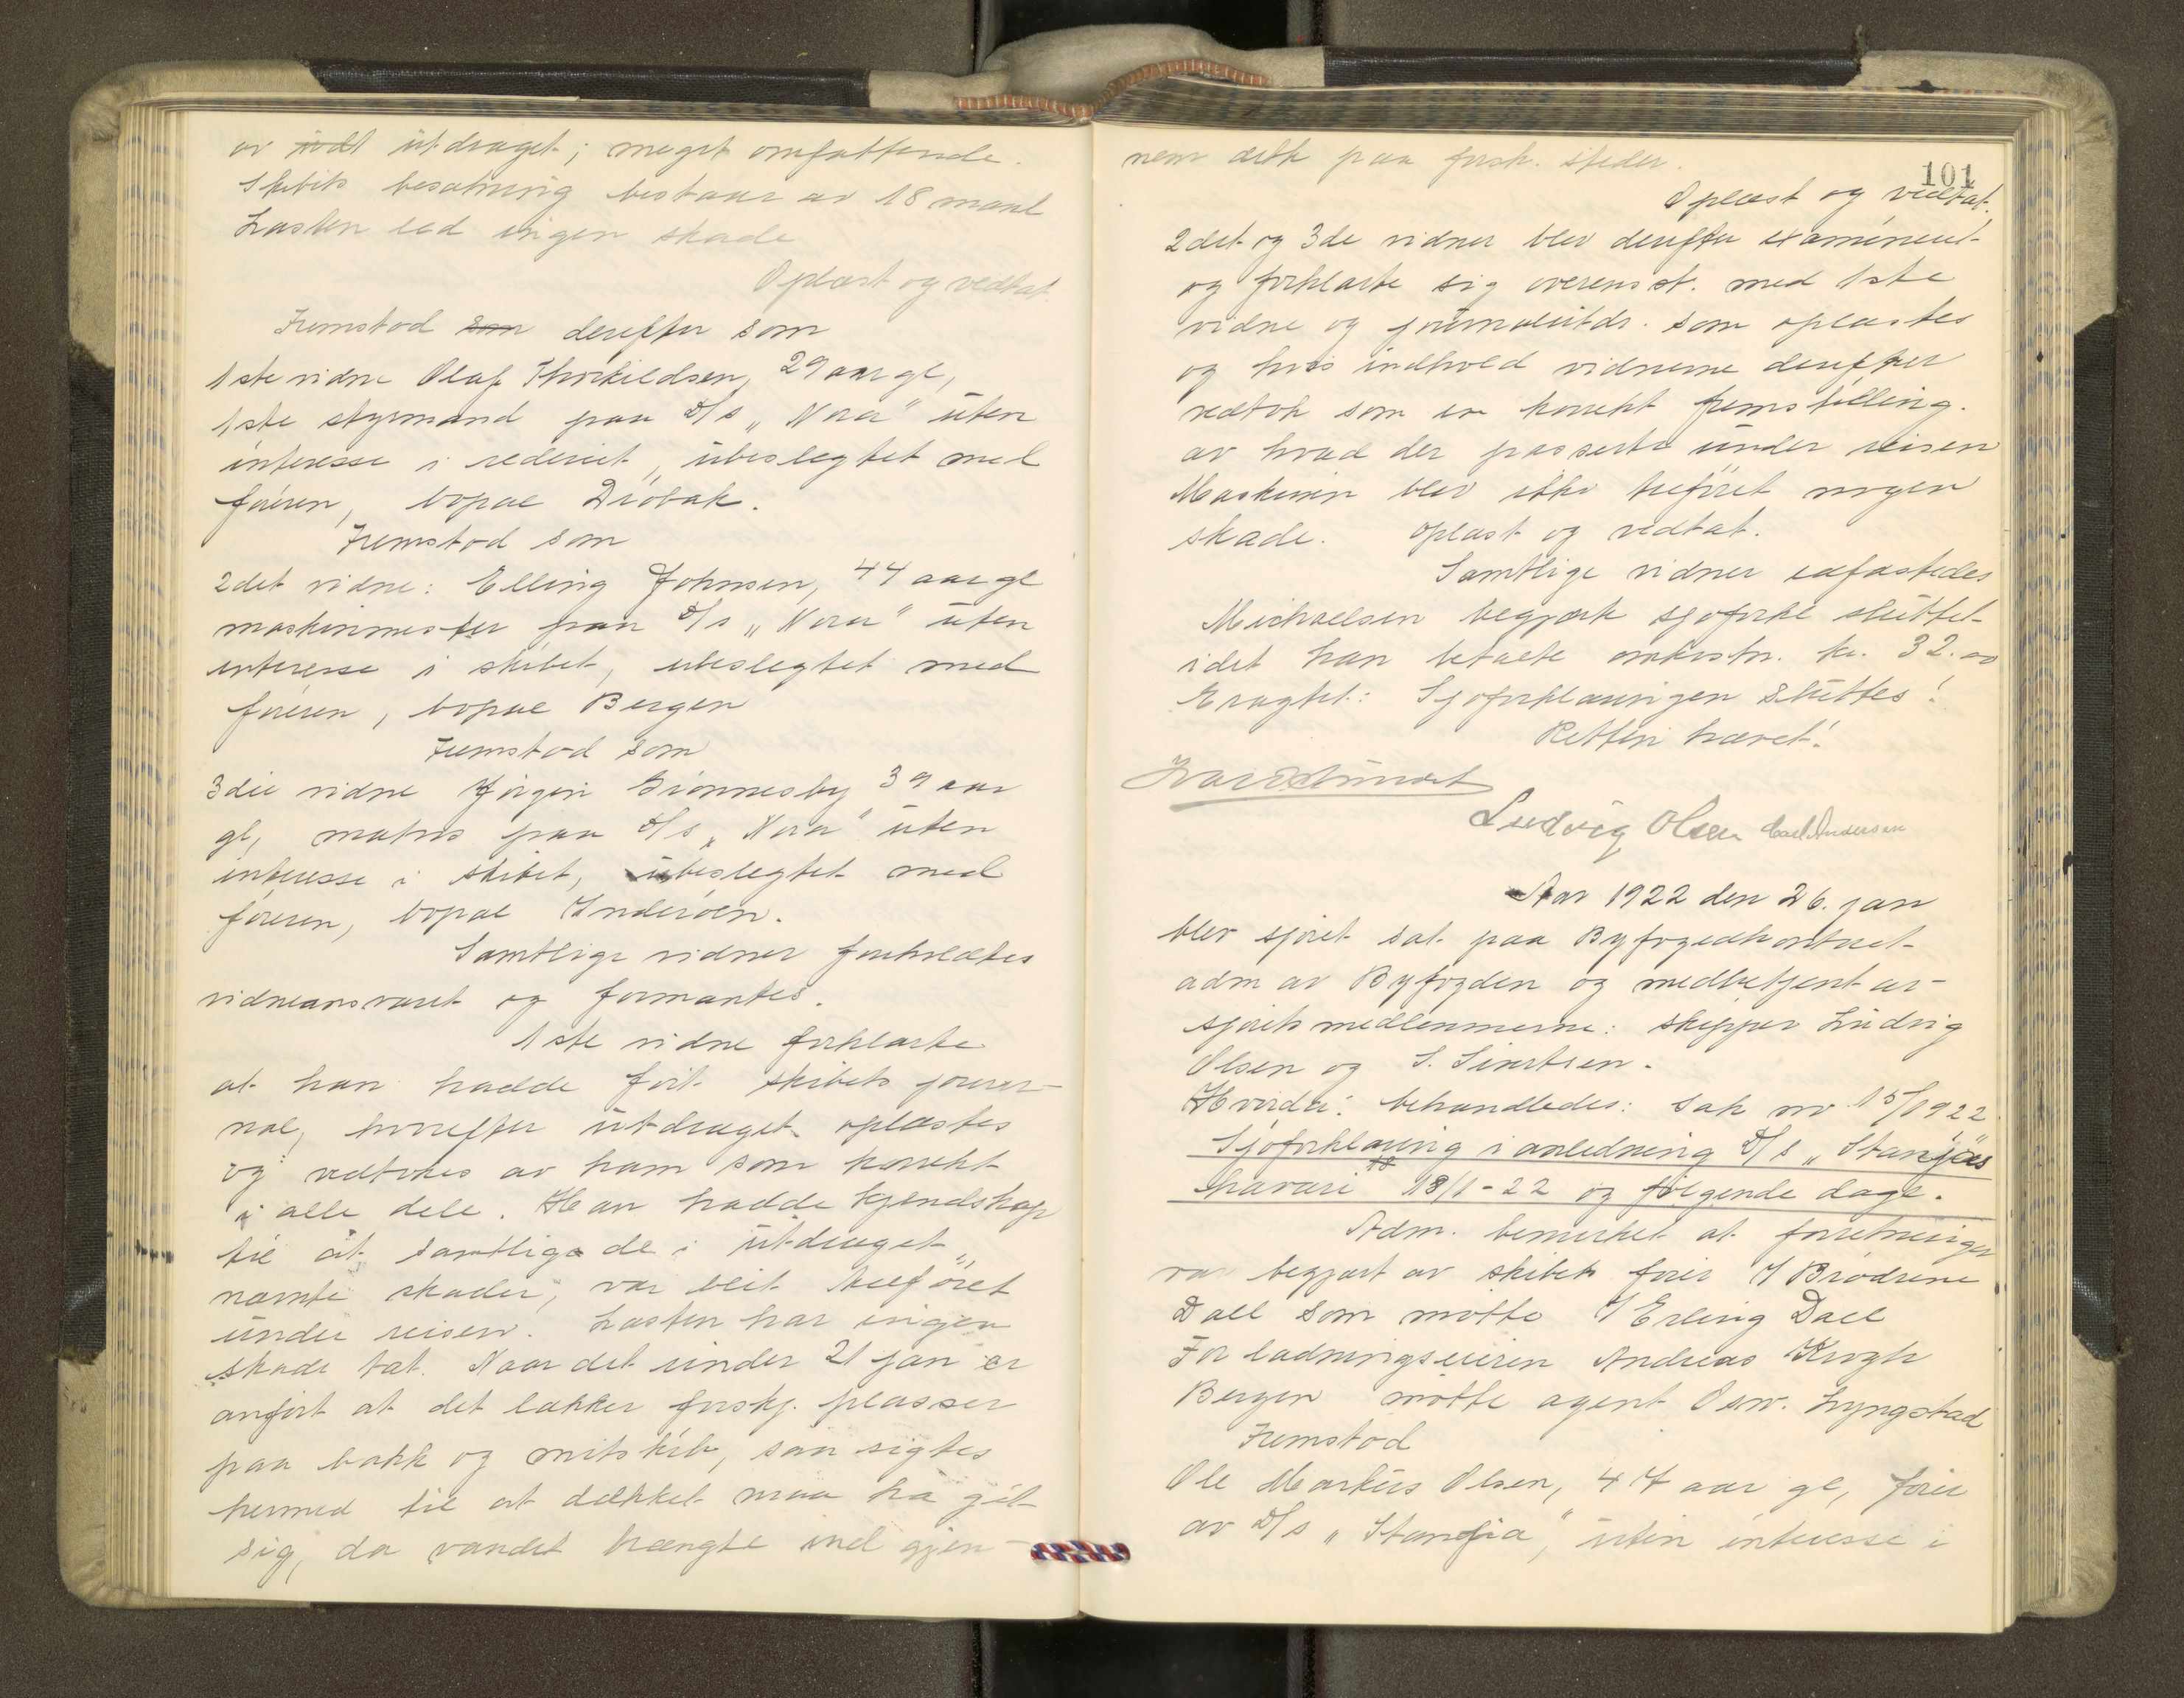 av utdraget; meget omfattende.
Skibets besætning bestaar av 18 mand
Lasten led ingen skade
Oplæst og vedtat.
Fremstod som derefter som
1ste vidne Olaf Thorkildsen, 29 aar gl,
1ste styrmand paa D/s „Nora" uten
interesse i rederiet, ubeslegtet med
føreren, bopæl Drøbak.
Fremstod som
2det vidne: Elling Johnsen, 44 aar gl
maskinmester paa D/s „Nora" uten
interesse i skibet, ubeslegtet med
føreren, bopæl Bergen
Fremstod som
3die vidne Jørgen Grønnesby 39 aar
gl, matros paa D/s „Nora" uten
interesse i skibet, ubeslegtet med
føreren, bopæl Inderøen.
Samtlige vidner foreholdtes
vidneansvaret og formantes.
1ste vidne forklarte
at han hadde ført skibets jour-
nal, hvorefter utdraget oplæstes
og vedtokes av ham som korrekt
i alle dele. Han hadde kjendskap
til at samtlige de i utdraget
nævnte skader, var blit tilføiet
under reisen. Lasten har ingen
skade tat. Naar det under 21 jan er
anført at det lækker forskj. plasser
paa bakk og mitskib, saa sigtes
hermed til at dækket maa ha git
sig, da vandet trængte ind gjen-
101
nem dette paa forsk. steder.
Oplæst og vedtat.
2det og 3de vidner blev derefter examineret
og forklarte sig overensst. med 1ste
vidne og journalutdr. som oplæstes
og hvis indhold vidnerne derefter
vedtok som en korrekt fremstilling.
av hvad der passerte under reisen
Maskinen blev ikke tilføiet nogen
skade. Oplæst og vedtat.
Samtlige vidner edfæstedes
Michaelsen begjærte sjøforkl sluttet
idet han betalte omkostn. kr. 32.00
Eragtet: Sjøforklaringen sluttes!
Retten hævet!
Ludvig Olsen Carl Andersen
Aar 1922 den 26. jan
blev sjøret sat paa Byfogedkontoret
adm av Byfogden og medbetjent av
sjøretsmedlemmerne: skipper Ludvig
Olsen og S. Sivertsen.
Hvorda: behandledes: Sak nr 15/1922
Sjøforklaring i anledning D/s „Stanjas
havari 18/1-22 og følgende dage.
Adm. bemerket at forretningen
var begjært av skibets fører v/ Brødrene
Dall som møtte v/ Erling Dall
For ladningseieren Andreas Krogh
Bergen møtte agent Osw. Lyngstad
Fremstod
Ole Markus Olsen, 47 aar gl, fører
av D/s „Stanja", uten interesse i